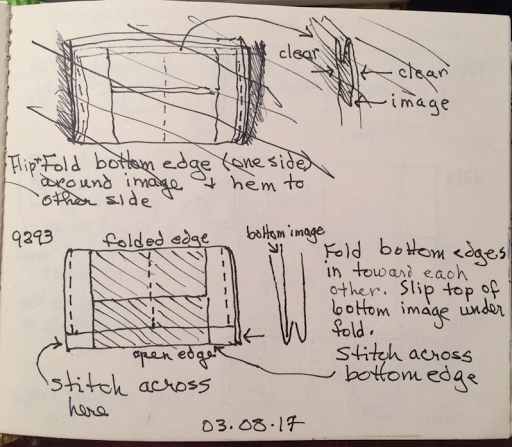 clear
clear
image
Flip + Fold bottom edge (one side)
around image + hem to
other side
9293
folded edge
bottom image
Fold bottom edges
in toward each
other. Slip top of
bottom image under
fold.
open edge
Stitch across
bottom edge
Stitch across
here
03.08.17